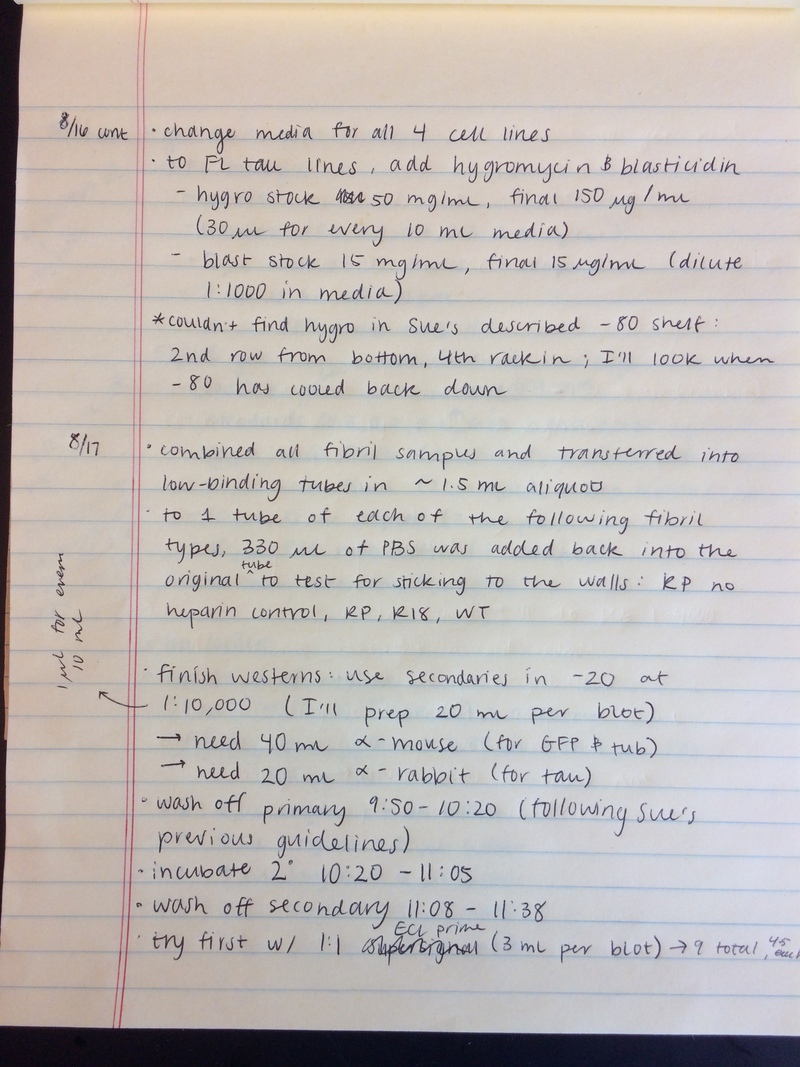 8/16 cont · change media for all 4 cell lines
· to FL tau lines, add hygromycin & blasticidin
- hygro stock 50 mg/mL, final 150 μg/mL
(30 μL for every 10 mL media)
- blast stock 15 mg/mL, final 15 μg/mL (dilute
1:1000 in media)
*couldn't find hygro in Sue's described -80 shelf:
2nd row from bottom, 4th rack in; I'll look when
-80 has cooled back down
8/17 · combined all fibril samples and transferred into
low-binding tubes in ~1.5 mL aliquots
· to 1 tube of each of the following fibril
types, 330 μL of PBS was added back into the
original ^tube to test for sticking to the walls: RP no
heparin control, RP, R18, WT
· finish westerns: use secondaries in -20 at
1:10,000 (I'll prep 20 mL per blot)
1 μL for every
10 mL
→ need 40 mL α-mouse (for GFP & tub)
→ need 20 mL α-rabbit (for tau)
· wash off primary 9:50-10:20 (following Sue's
previous guidelines)
· incubate 2° 10:20 - 11:05
· wash off secondary 11:08 - 11:38
· try first w/ 1:1 ECL prime (3 mL per blot) → 9 total,